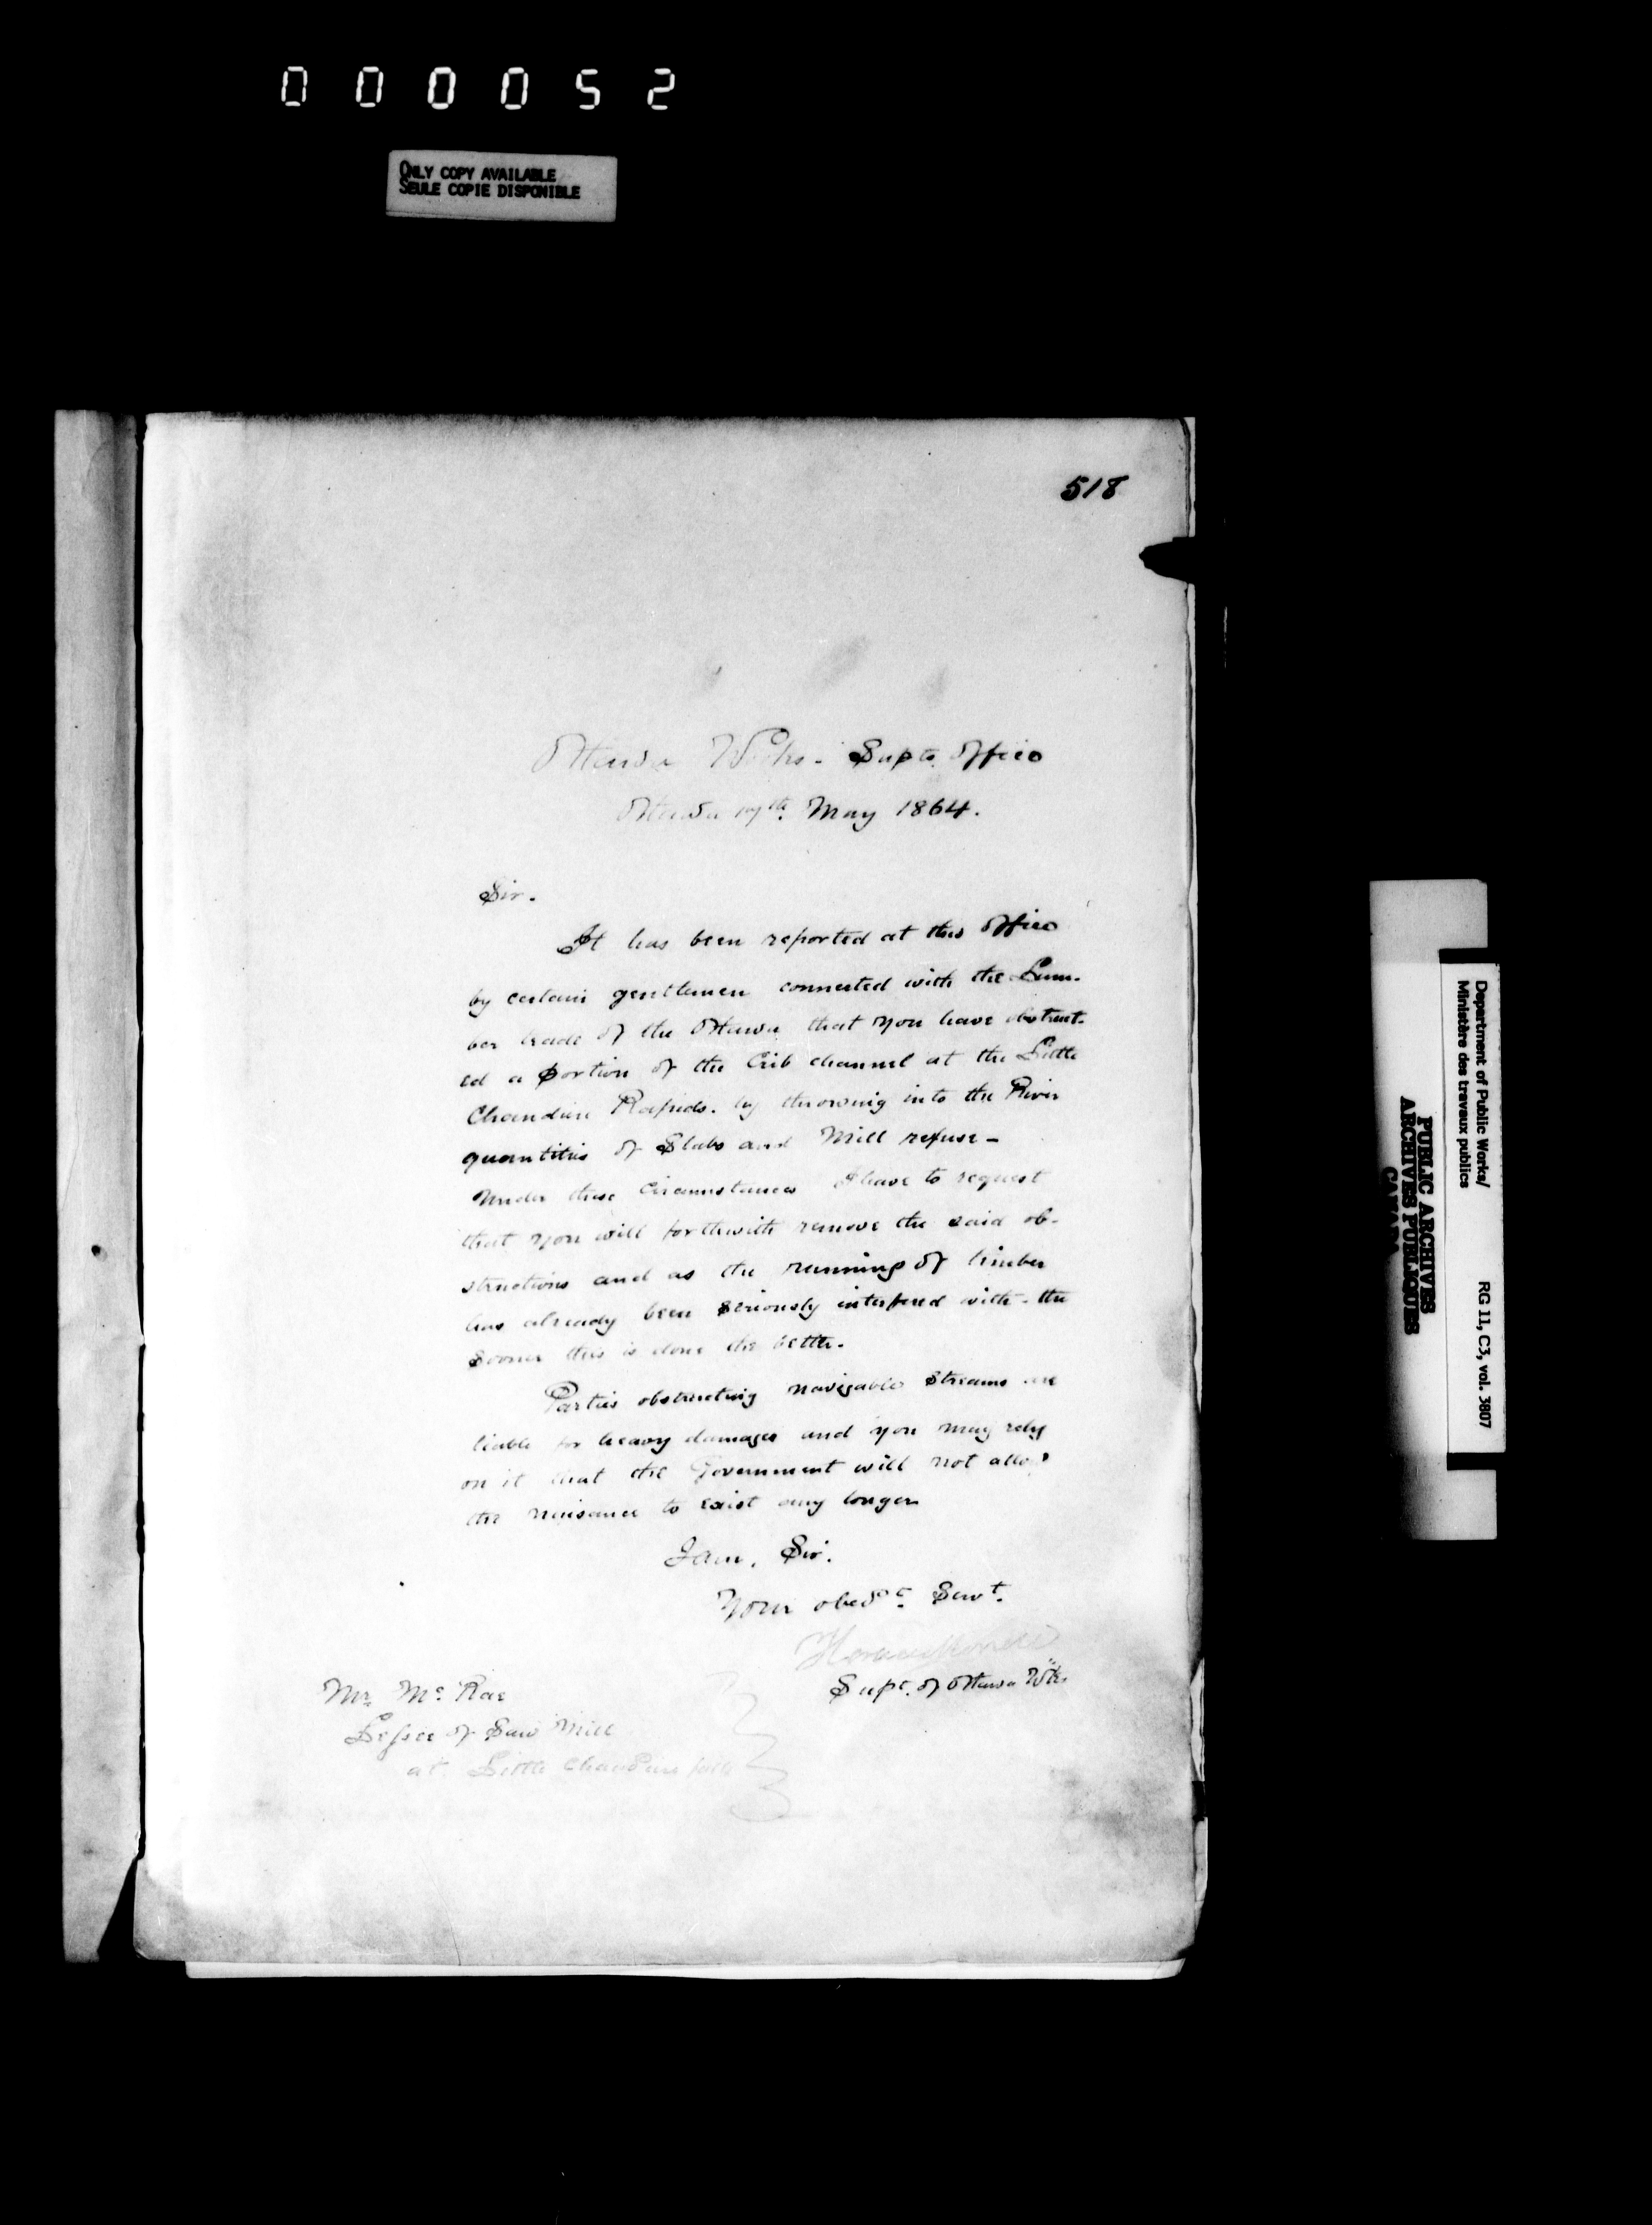 000052
ONLY COPY AVAILABLE
SEULE COPIE DISPONIBLE
518
Ottawa Works. Supts. Office
Ottawa 17th. May 1864.
Sir.
It has been reported at this Office
by certain gentlemen connected with the Lum-
ber trade of the Ottawa that you have obstruct-
ed a portion of the Crib channel at the Little
Chaudiere Rapids. by throwing into the River
quantities of Slabs and Mill refuse -
Under these Circumstances I have to request
that you will forthwith remove the said ob-
structions and as the running of timber
has already been seriously interfered with - the
sooner this is done the better.
Parties obstructing navigable streams are
liable for heavy damages and you may rely
on it that the Government will not allow
the nuisance to exist any longer
I am, Sir.
Your obedt. Servt.
Horace Merrill
Supt. of Ottawa Wks
Mr. Mc. Rae
Lessee of Saw Mill
at Little Chaudiere falls
Department of Public Works/
Ministère des travaux publics
RG 11, C3, vol. 3807
PUBLIC ARCHIVES
ARCHIVES PUBLIQUES
CANADA